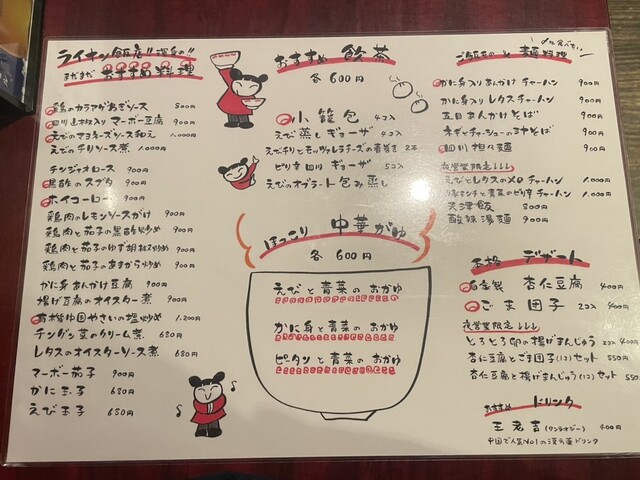 ライオン飯店!! 運命の!!
まだまだ おすすめ料理
鶏のカラアゲねぎソース 800円
四川山椒入り マーボー豆腐 900円
えびのマヨネーズソース和え 1,000円
えびのチリソース煮 1,000円
チンジャオロース 900円
黒酢のスブタ 900円
ホイコーロー 900円
鶏肉のレモンソースがけ 900円
鶏肉と茄子の黒酢炒め 900円
鶏肉と茄子のゆず胡椒炒め 900円
鶏肉と茄子のあまから炒め 900円
かに身あんかけ豆腐 900円
揚げ豆腐のオイスター煮 900円
有機中国やさいの塩炒め 1,200円
チンゲン菜のクリーム煮 680円
レタスのオイスターソース煮 680円
マーボー茄子 900円
かに玉子 680円
えび玉子 680円
おすすめ 飲茶
各600円
小籠包 4コ入
えび蒸しギョーザ 4コ入
えびチリとモッツァレラチーズの春巻き 2本
ピリ辛四川ギョーザ 5コ入
えびのオブラート包み蒸し
ほっこり 中華がゆ
各600円
えびと青菜のおかゆ
かに身と青菜のおかゆ
ピータンと青菜のおかゆ
ごはんもの と 麺料理
かに身入りあんかけチャーハン 900円
かに身入りレタスチャーハン 900円
五目あんかけそば 900円
ネギチャーシューのまぜそば 900円
四川担々麺 900円
夜営業限定↓↓↓
えびとレタスのXOチャーハン 1,000円
豚ミンチと青菜のピリ辛チャーハン 1,000円
天津飯 800円
酸辣湯麺 900円
本格 デザート
自家製 杏仁豆腐 400円
ごま団子 2コ入 400円
夜営業限定↓↓↓
とろとろ卵の揚げまんじゅう 2コ 400円
杏仁豆腐とごま団子(1コ)セット 550円
杏仁豆腐と揚げまんじゅう(1コ)セット 550円
おすすめ ドリンク
王老吉(ワンラオジー) 400円
中国で人気No1の漢方茶ドリンク